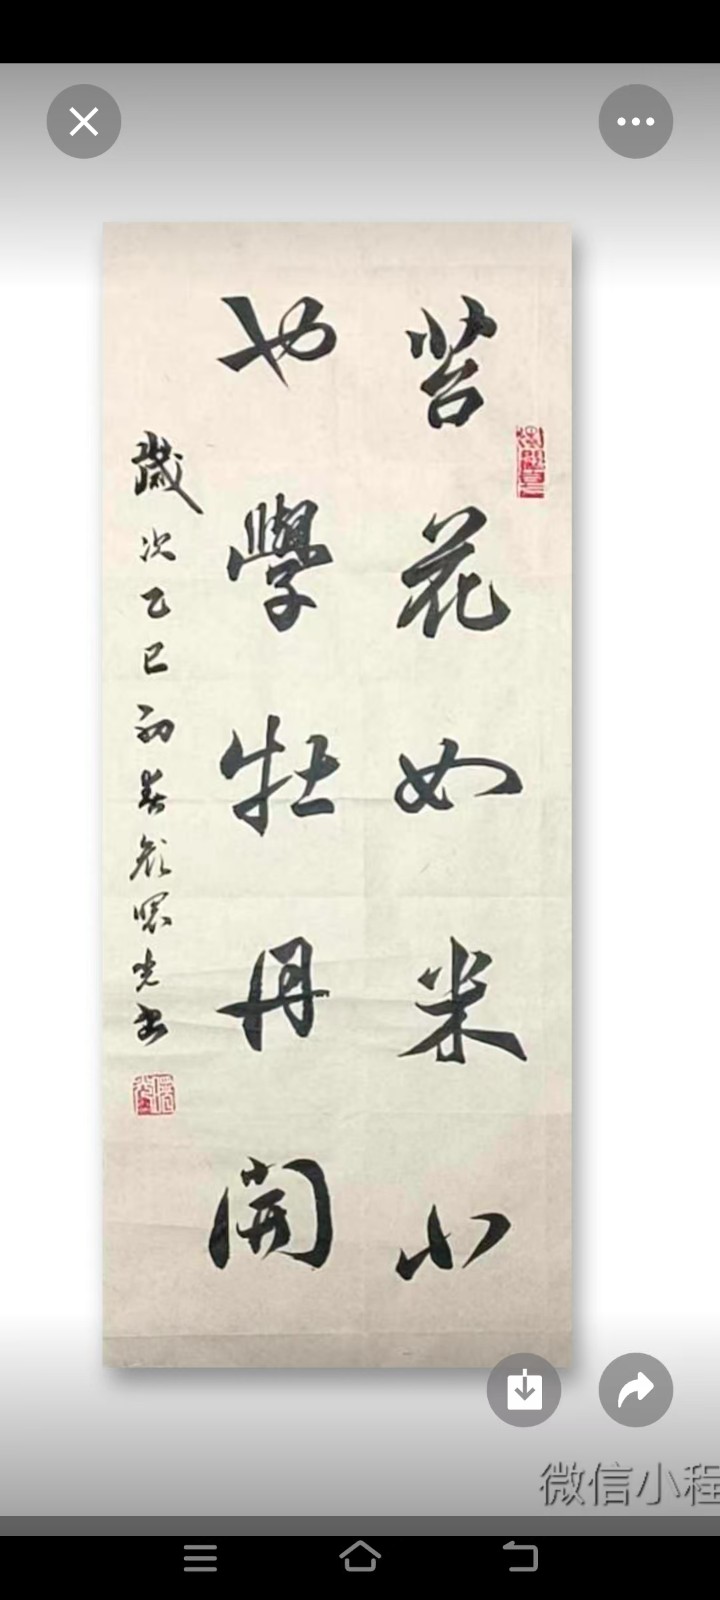 苔花如米小
也學牡丹開
歲次乙巳初春顏眾光書
微信小程